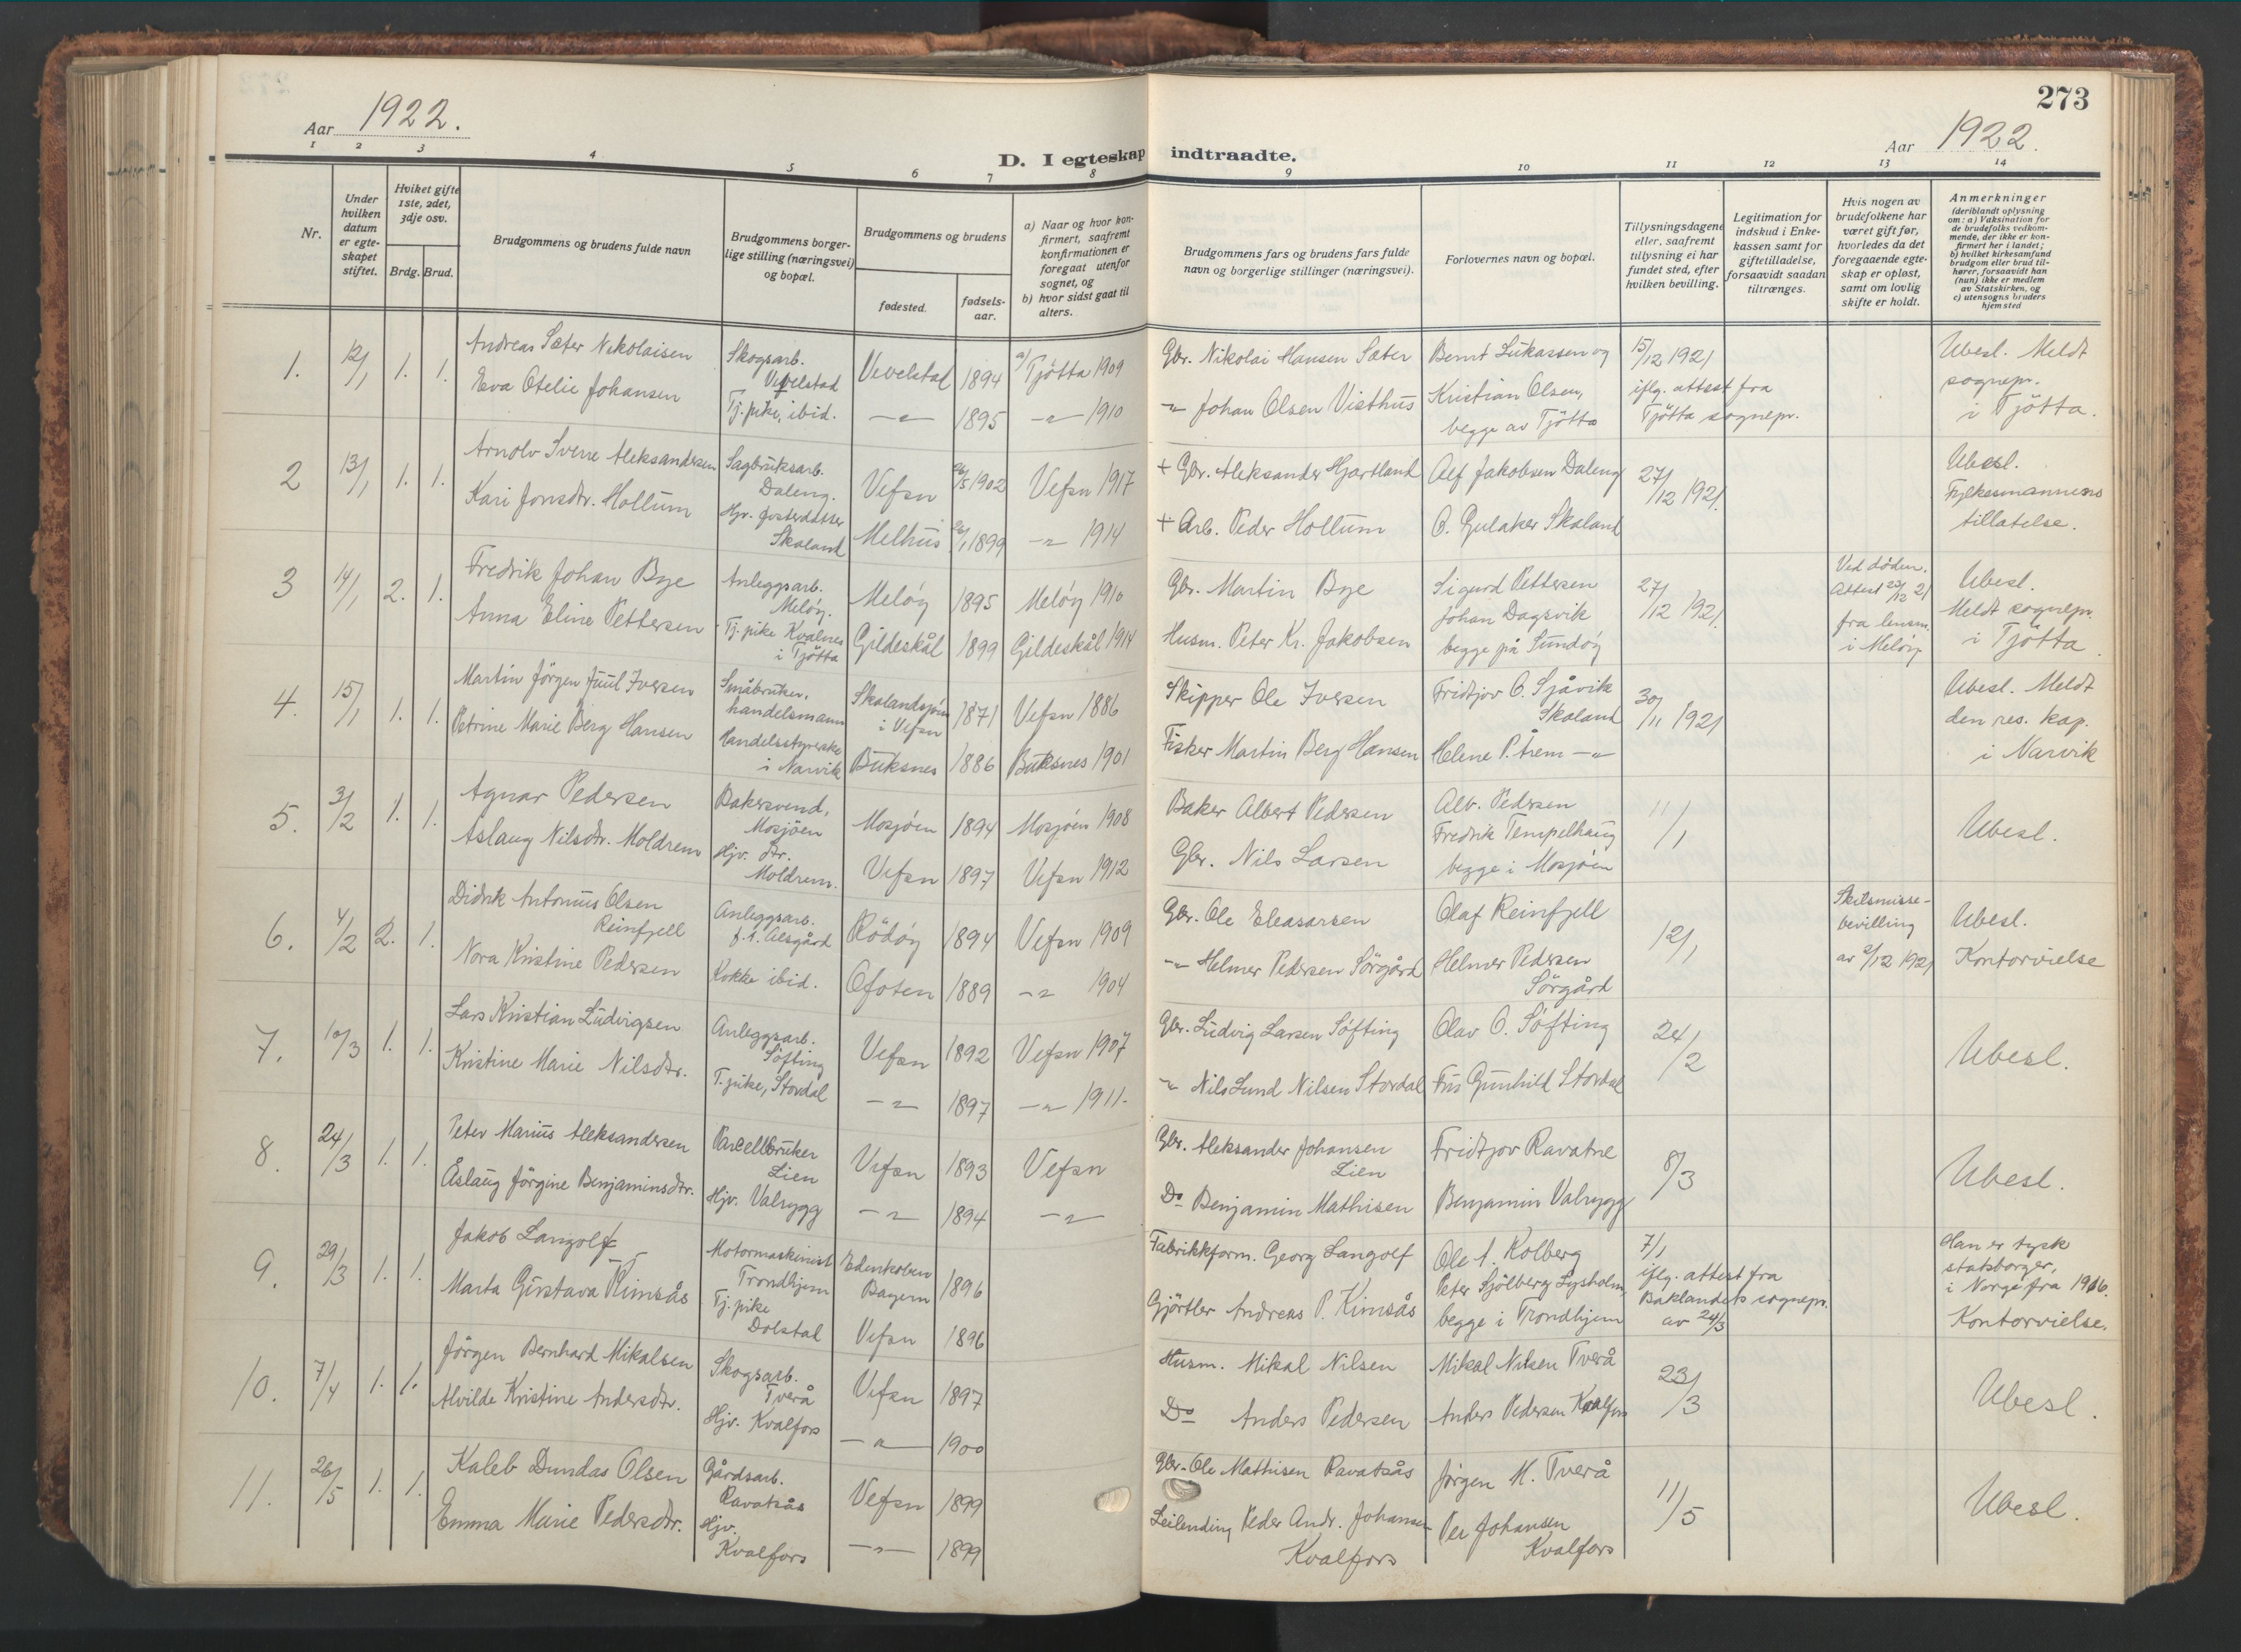 273
Aar 1922.
Aar 1922.
D. I egteskap indtraadte.
1 2 3 4 5 6 7 8 9 10 11 12 13 14
Nr.
Under hvilken datum er egte-skapet stiftet.
Hviket gifte 1ste, 2det, 3dje osv.
Brdg. Brud.
Brudgommens og brudens fulde navn
Brudgommens borger-lige stilling (næringsvei) og bopæl.
Brudgommens og brudens
fødested.
fødsels-aar.
a) Naar og hvor kon-firmert, saafremt konfirmationen er foregaat utenfor sognet, og
b) hvor sidst gaat til alters.
Brudgommens fars og brudens fars fulde navn og borgerlige stillinger (næringsvei).
Forlovernes navn og bopæl.
Tillysningsdagene eller, saafremt tillysning ei har fundet sted, efter hvilken bevilling.
Legitimation for indskud i Enke-kassen samt for giftetilladelse, forsaavidt saadan tiltrænges.
Hvis nogen av brudefolkene har været gift før, hvorledes da det foregaaende egte-skap er opløst, samt om lovlig skifte er holdt.
Anmerkninger (deriblandt oplysning om: a) Vaksination for de brudefolks vedkom-mende, der ikke er kon-firmert her i landet; b) hvilket kirkesamfund brudgom eller brud til-hører, forsaavidt han (hun) ikke er medlem av Statskirken, og c) utensogns bruders hjemsted
1. 12/1 1. 1. Andreas Sæter Nikolaisen Skogsarb. Vevelstad Vevelstad 1894 a/ Tjötta 1909 Gbr. Nikolai Hansen Sæter Bernt Lukassen og 15/12 1921 Ubesl. Meldt
Eva Otelie Johansen Tj.pike, ibid. —"— 1895 —"— 1910 —"— Johan Olsen Visthus Kristian Olsen, begge av Tjötta iflg. attest fra Tjötta sognepr. sognepr. i Tjötta.
2 13/1 1. 1. Arnolv Sverre Aleksandersen Sagbruksarb. Daleng. Vefsn 26/5 1902 Vefsn 1917 + Gbr. Aleksander Hjartland Alf Jakobsen Daleng 27/12 1921. Ubesl.
Kari Jonsdtr. Hollum Hjv. fosterdatter Skaland Melhus 26/1 1899 —"— 1914 + Arb. Peder Hollum O. Gulaker Skaland Fylkesmannens tillatelse.
3 14/1 2. 1. Fredrik Johan Bye Anleggsarb. Melöy. Melöy 1895 Melöy 1910 Gbr. Martin Bye Sigurd Pettersen 27/12 1921. Ved döden. Attest 23/12 21 Ubesl.
Anna Eline Pettersen Tj.pike Kvalnes i Tjötta Gildeskål 1899 Gildeskål 1914 Husm. Peter Kr. Jakobsen Johan Dagsvik begge på Sundöy fra lensm. i Melöy Meldt sognepr. i Tjötta.
4. 15/1 1. 1. Martin Jörgen Juul Iversen Småbruker, handelsmann Skalandsjöen i Vefsn 1871 Vefsn 1886 Skipper Ole Iversen Fridtjov O. Sjåvik Skaland 30/11 1921 Ubesl. Meldt
Petrine Marie Berg Hansen Handelsstyrerske i Narvik Buksnes 1886 Buksnes 1901 Fisker Martin Berg Hansen Helene P. Årem —"— den res. kap. i Narvik
5. 3/2 1. 1. Agnar Pedersen Bakersvend, Mosjöen Mosjöen 1894 Mosjöen 1908 Baker Albert Pedersen Alb. Pedersen 11/1 Ubesl.
Aslaug Nilsdtr. Moldrem Hjv. dtr. Moldrem. Vefsn 1897 Vefsn 1912 Gbr. Nils Larsen Fredrik Tempelhaug begge i Mosjöen
6. 4/2 2. 1. Didrik Antonius Olsen Reinfjell Anleggsarb. Alsgård Rödöy 1894 Vefsn 1909 Gbr. Ole Eleasarsen Olaf Reinfjell 12/1 Skilsmisse-bevilling av 2/12 1921 Ubesl.
Nora Kristine Pedersen Kokke ibid. Ofoten 1889 —"— 1904 —"— Helmer Pedersen Sörgård Helmer Pedersen Sörgård Kontorvielse
7. 10/3 1. 1. Lars Kristian Ludvigsen Anleggsarb. Söfting Vefsn 1892 Vefsn 1907 Gbr. Ludvig Larsen Söfting Olav O. Söfting 24/2 Ubesl.
Kristine Marie Nilsdtr. T.pike, Stordal —"— 1897 —"— 1911. —"— Nils Lund Nilsen Stordal Fru Gunhild Stordal
8. 24/3 1. 1. Peter Marius Aleksandersen Parcellbruker Lien Vefsn 1893 Vefsn Gbr. Aleksander Johansen Lien Fridtjov Ravatne 8/3 Ubesl.
Åslaug Jörgine Benjaminsdtr. Hjv. Valrygg —"— 1894 —"— Do Benjamin Mathisen Benjamin Valrygg
9. 29/3 1. 1. Jakob Langolf Motormaskinist Trondhjem Edenkoben Bayern 1896 Fabrikkform. Georg Langolf Ole A. Kolberg 7/1 iflg. attest fra Han er tysk statsborger, i Norge fra 1916.
Marta Gustava Kimsås Tj.pike Dolstad Vefsn 1896 Gjörtler Andreas P. Kimsås Peter Sjölberg Lysholm, begge i Trondhjem Baklandets sognepr. av 24/3 Kontorvielse.
10. 7/4 1. 1. Jörgen Bernhard Mikalsen Skogsarb. Tverå Vefsn 1897 Husm. Mikal Nilsen Mikal Nilsen Tverå 23/3 Ubesl.
Alvilde Kristine Andersdtr. Hjv. Kvalfors —"— 1900 Do Anders Pedersen Anders Pedersen Kvalfors
11. 26/5 1. 1. Kaleb Dundas Olsen Gårdsarb. Ravatsås Vefsn 1899 Gbr. Ole Mathisen Ravatsås Jørgen M. Tverå 11/5 Ubesl.
Emma Marie Pedersdtr. Hjv. Kvalfors —"— 1899 Leilending Peder Andr. Johansen Kvalfors Per Johansen Kvalfors